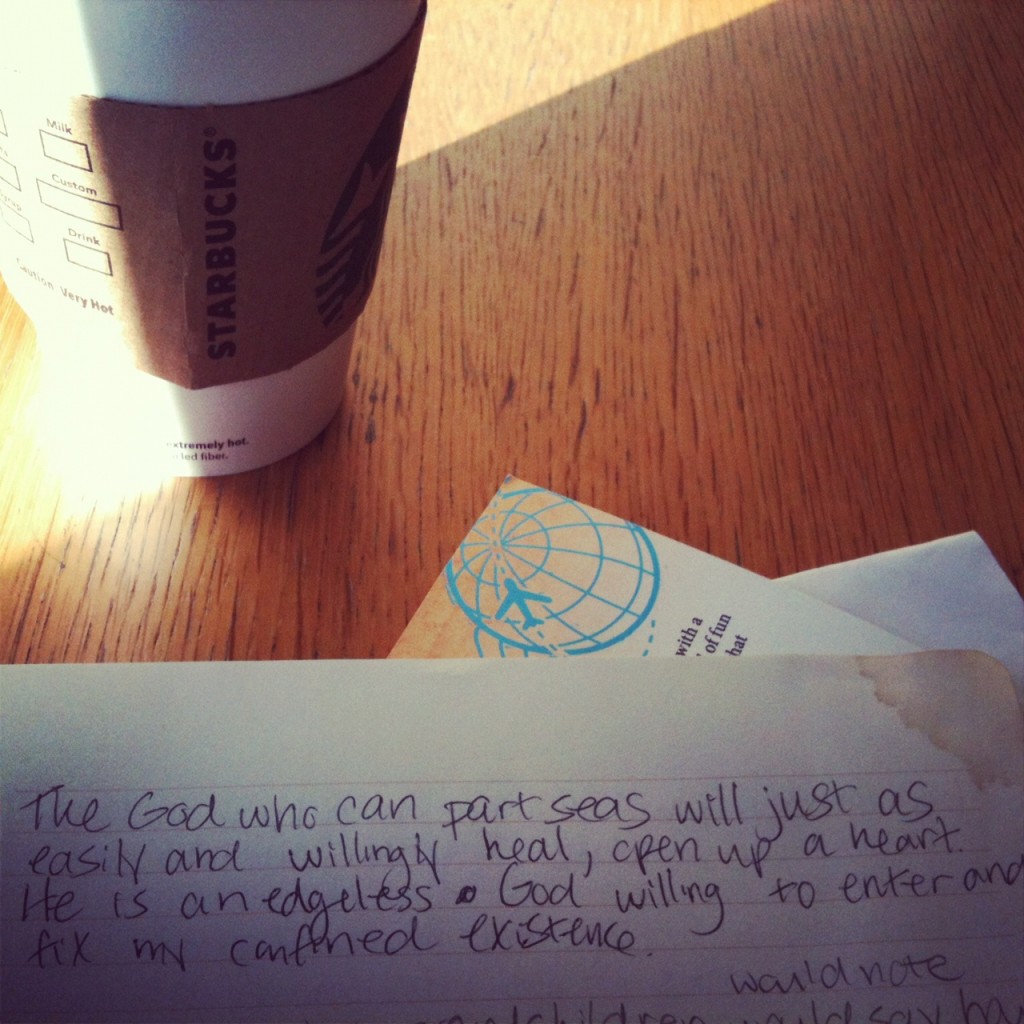 Milk
Custom
Drink
Very Hot
STARBUCKS®
extremely hot.
fiber.
with a
of fun
The God who can part seas will just as
easily and willingly heal, open up a heart.
He is an edgeless God willing to enter and
fix my confined existence.
would note
would say